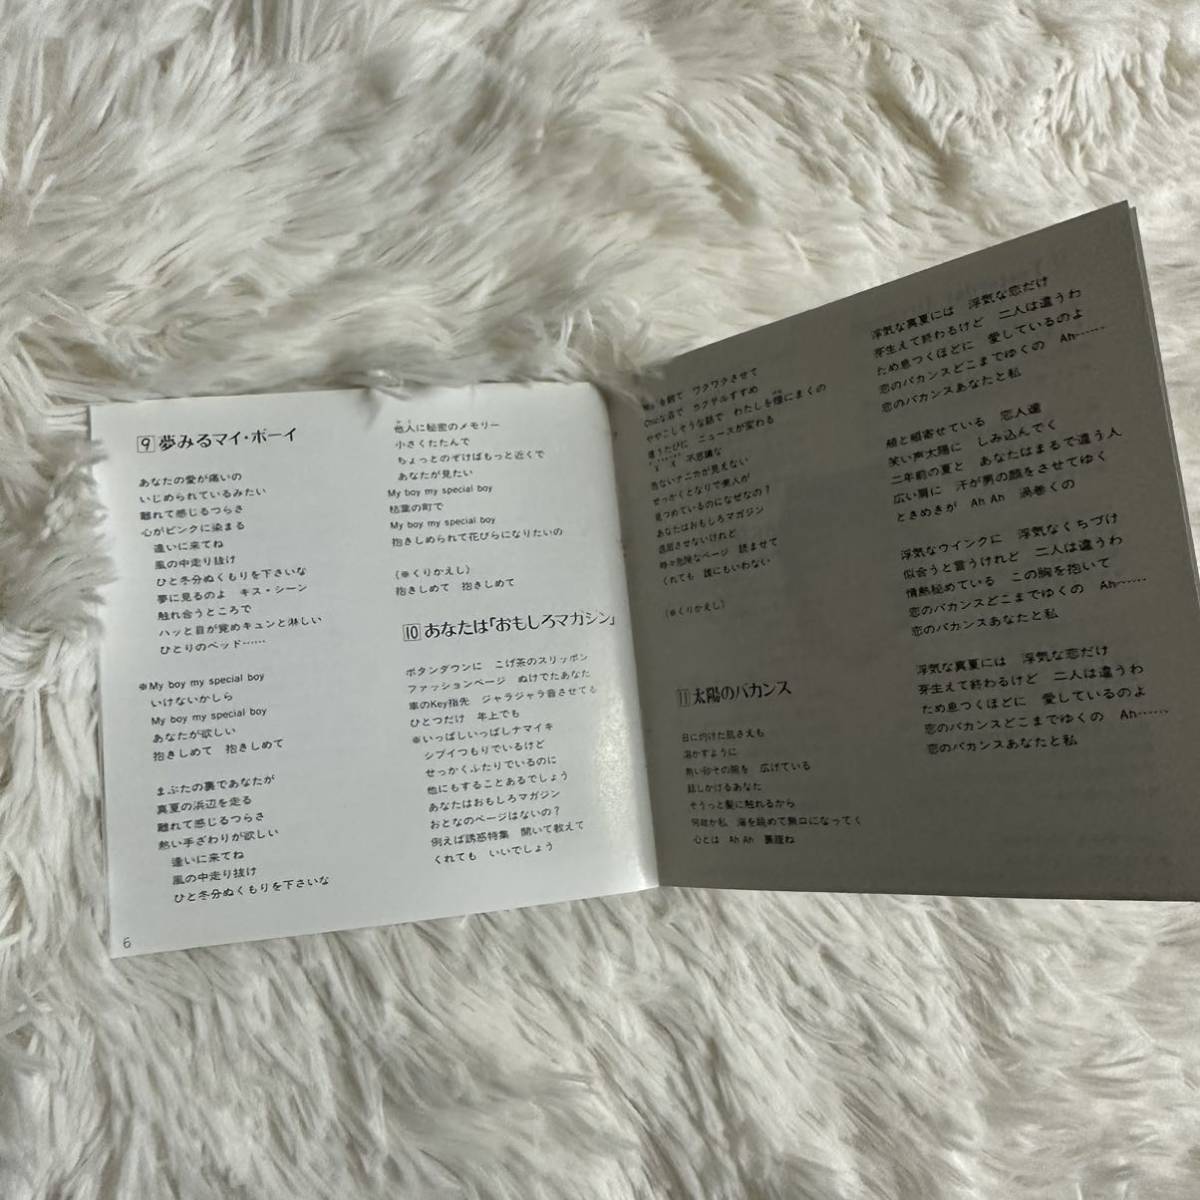 9 夢みるマイ・ボーイ
あなたの愛が痛いの
いじめられているみたい
離れて感じるつらさ
心がピンクに染まる
逢いに来てね
風の中走り抜け
ひと冬分ぬくもりを下さいな
夢に見るのよ キス・シーン
触れ合うところで
ハッと目が覚めキュンと淋しい
ひとりのベッド……
※My boy my special boy
いけないかしら
My boy my special boy
あなたが欲しい
抱きしめて 抱きしめて
まぶたの裏であなたが
真夏の浜辺を走る
離れて感じるつらさ
熱い手ざわりが欲しい
逢いに来てね
風の中走り抜け
ひと冬分ぬくもりを下さいな
他人に秘密のメモリー
小さくたたんで
ちょっとのぞけばもっと近くで
あなたが見たい
My boy my special boy
枯葉の町で
My boy my special boy
抱きしめられて花びらになりたいの
(※くりかえし)
抱きしめて 抱きしめて
10 あなたは「おもしろマガジン」
ボタンダウンに こげ茶のスリッポン
ファッションページ ぬけでたあなた
車のKey指先 ジャラジャラ音させてる
ひとつだけ 年上でも
※いっぱしいっぱしナマイキ
シブイつもりでいるけど
せっかくふたりでいるのに
他にもすることあるでしょう
あなたはおもしろマガジン
おとなのページはないの?
例えば誘惑特集 開いて教えて
くれても いいでしょう
6
ワクワクさせて
Chicな店で カクテルすすめ
ややこしそうな話で わたしを煙にまくの
逢うたびに ニュースが変わる
不思議な
危ないナニカが見えない
せっかくとなりで美人が
見つめているのになぜなの?
あなたはおもしろマガジン
退屈させないけれど
時々危険なページ 読ませて
くれても 誰にもいわない
(※くりかえし)
11 太陽のバカンス
日に灼けた肌さえも
溶かすように
熱い砂その腕を 広げている
話しかけるあなた
そうっと髪に触れるから
何故か私 海を眺めて無口になってく
心とは Ah Ah 裏腹ね
浮気な真夏には 浮気な恋だけ
芽生えて終わるけど 二人は違うわ
ため息つくほどに 愛しているのよ
恋のバカンスどこまでゆくの Ah……
恋のバカンスあなたと私
頬と頬寄せている 恋人達
笑い声太陽に しみ込んでく
二年前の夏と あなたはまるで違う人
広い肩に 汗が男の顔をさせてゆく
ときめきが Ah Ah 渦巻くの
浮気なウインクに 浮気なくちづけ
似合うと言うけれど 二人は違うわ
情熱秘めている この胸を抱いて
恋のバカンスどこまでゆくの Ah……
恋のバカンスあなたと私
浮気な真夏には 浮気な恋だけ
芽生えて終わるけど 二人は違うわ
ため息つくほどに 愛しているのよ
恋のバカンスどこまでゆくの Ah……
恋のバカンスあなたと私